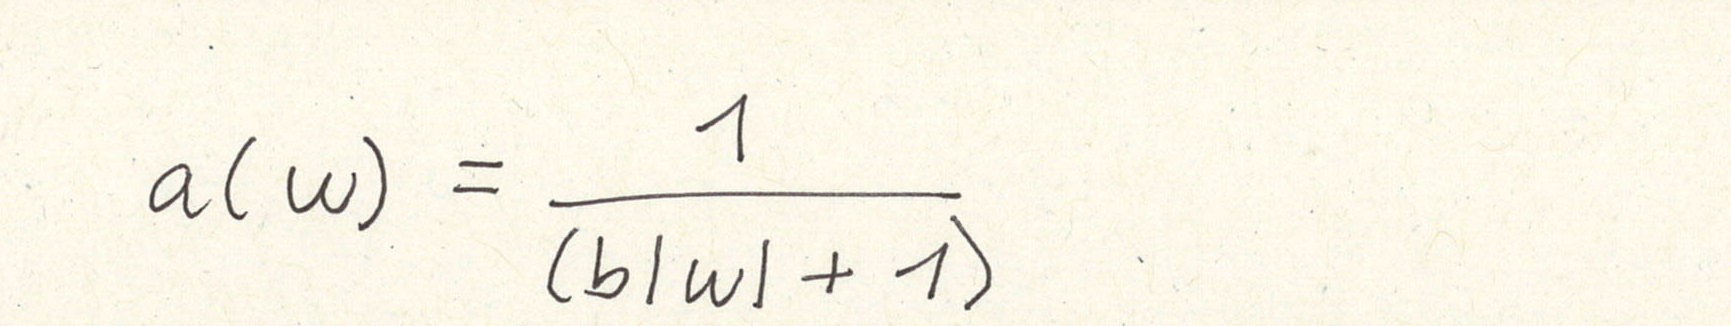 a(w) = \frac{1}{(b|w| + 1)}